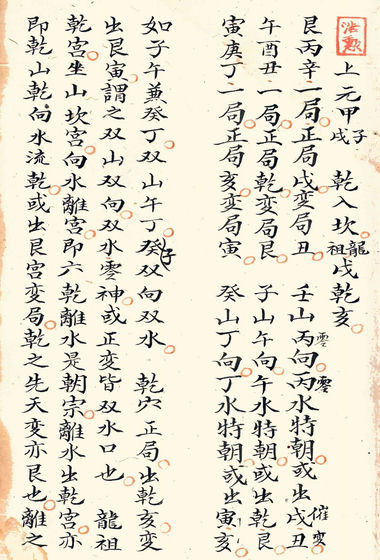 上元甲子戌 乾入坎龍祖戌乾亥
艮丙辛一局正局戌变局丑 壬山丙向零丙水零特朝或出戌丑催变
午酉丑一局正局乾变局艮 子山午向午水特朝或出乾艮
寅庚丁一局正局亥变局寅 癸山丁向丁水特朝或出寅亥
如子午兼癸丁双山午丁癸子双向双水 乾穴正局出乾亥变
出艮寅謂之双山双向双水零神或正变皆双水口也 龍祖
乾宫坐山坎宫向水離宫即六乾離水是朝宗離水出乾宫亦
即乾山乾向水流乾或出艮宫变局乾之先天变亦艮也離之